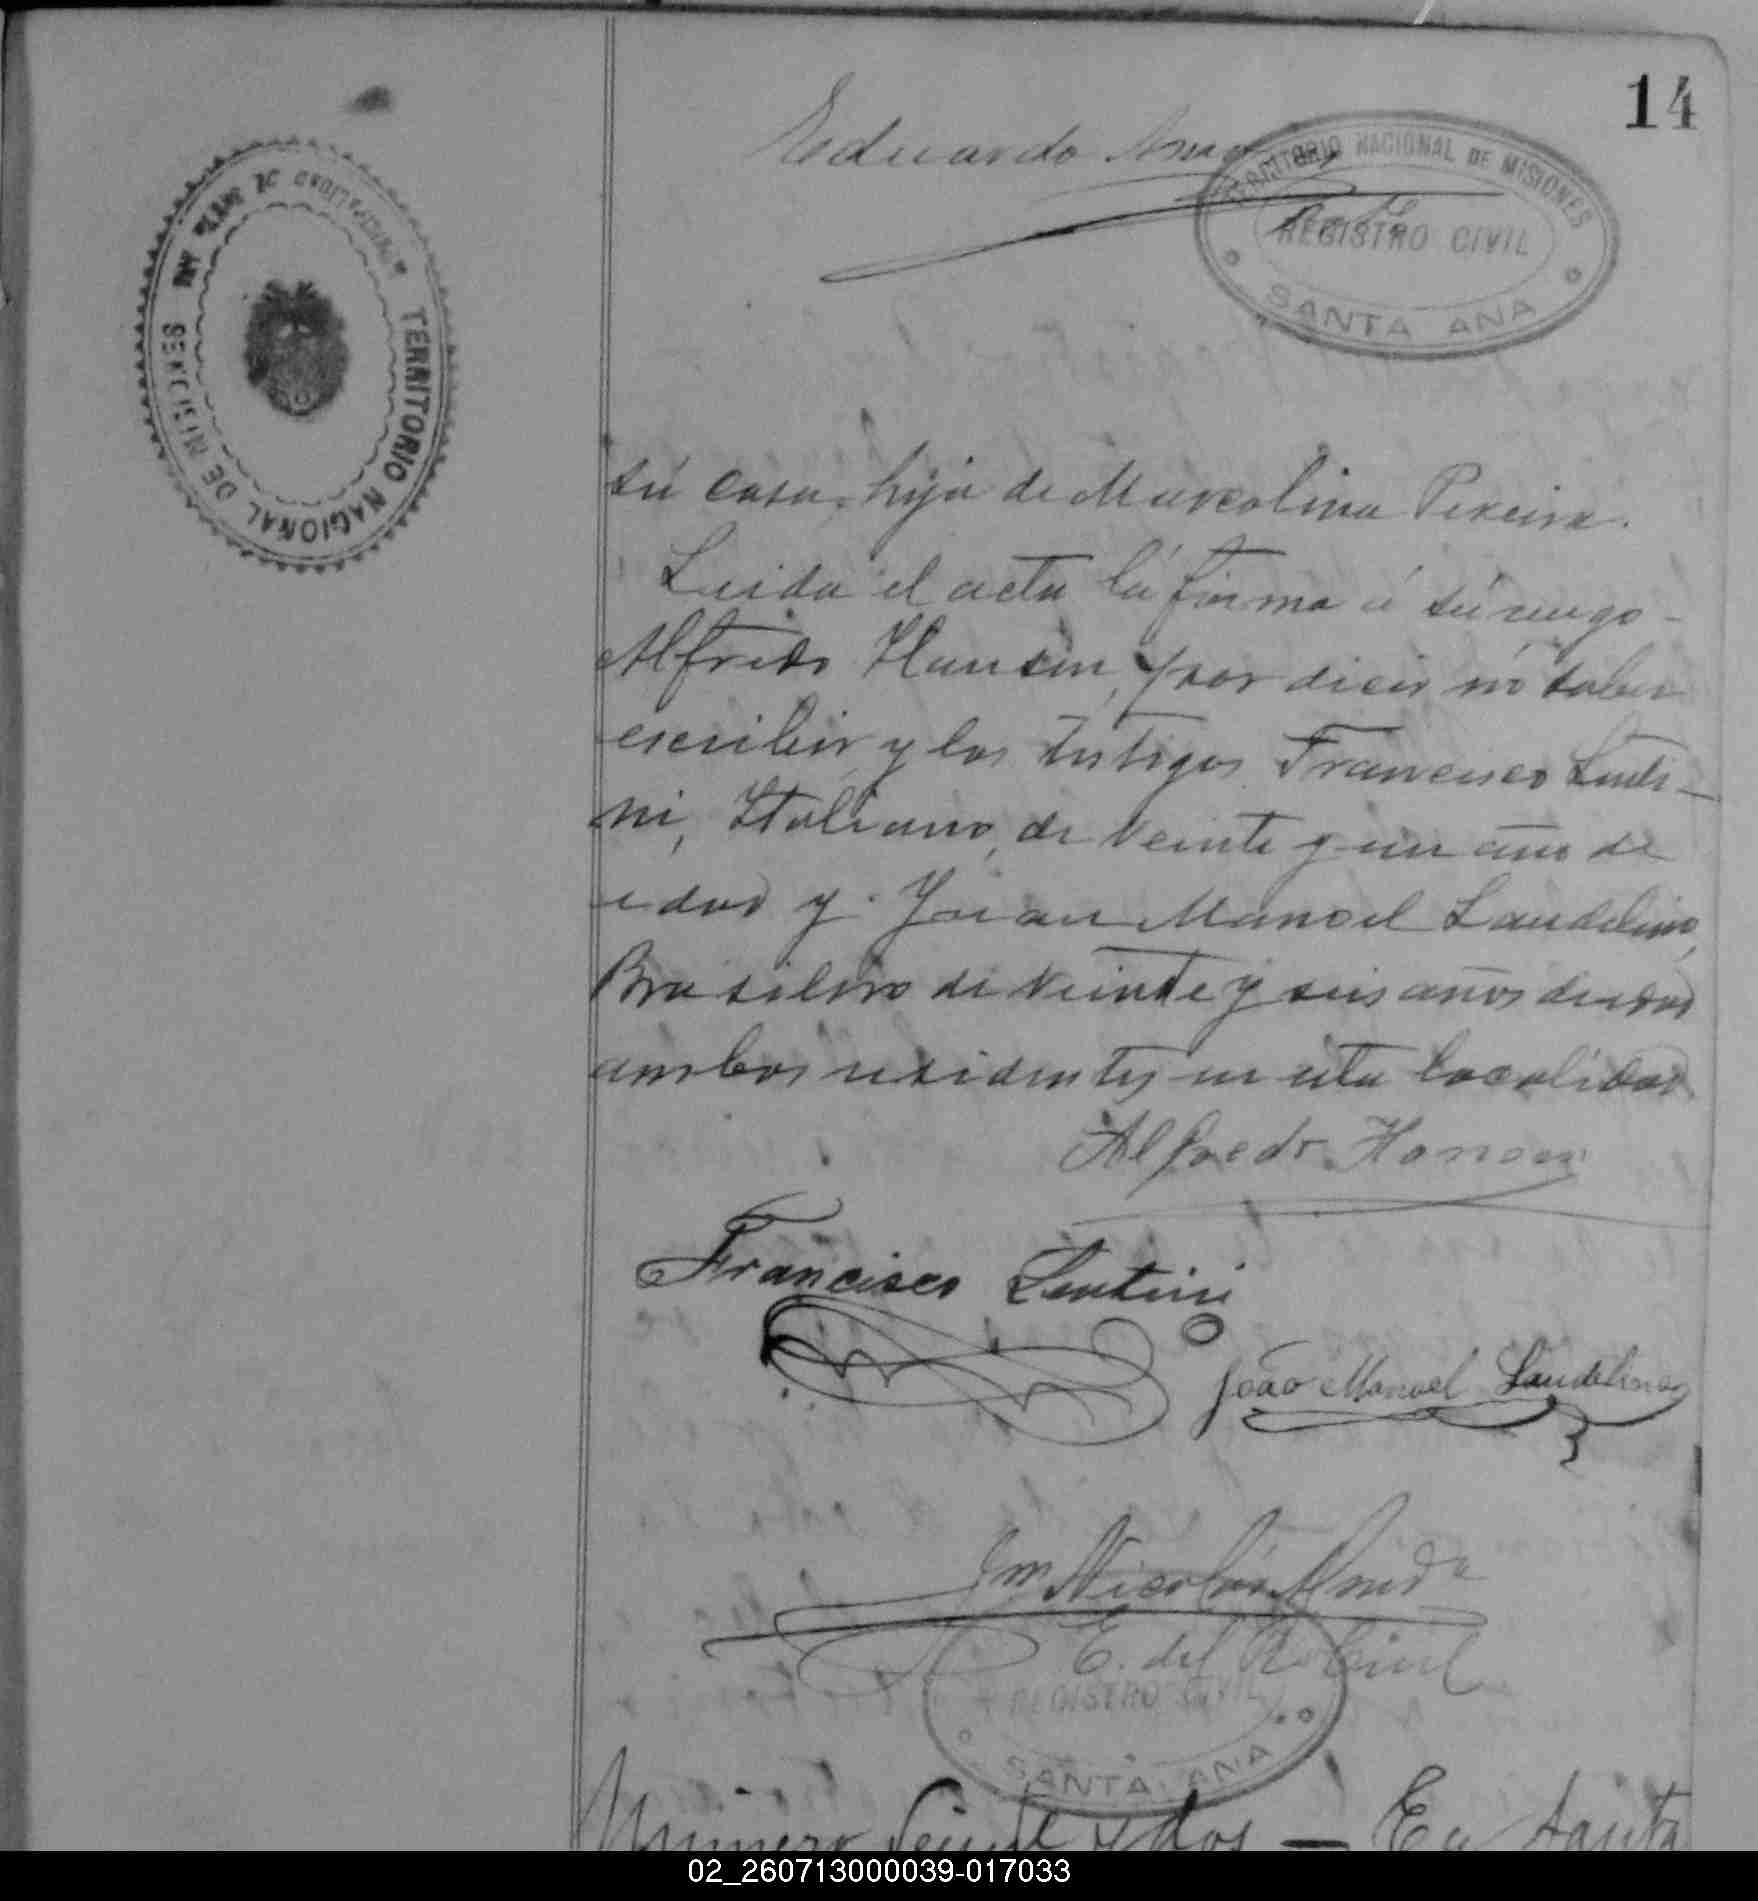 14
Eduardo
TERRITORIO NACIONAL DE MISIONES
REGISTRO CIVIL
SANTA ANA
TERRITORIO NACIONAL DE MISIONES
sú casa, hija de Marcolina Pereira.
Leida el acta la firma á sú ruego
Alfredo Hansen, por decir nó saber
escribir y los testigos Francisco Lenti-
ni, Italiano, de veinte y un años de
edad y Juan Manoel Laudelino,
Brasilero de veinte y seis años de edad
ambos residentes en esta localidad.
Alfredo Hansen
Francisco Lentini
João Manoel Laudelino
Nicolás
E. del R. Civil
REGISTRO CIVIL
SANTA ANA
Número Veinte y dos — En Santa
02_260713000039-017033